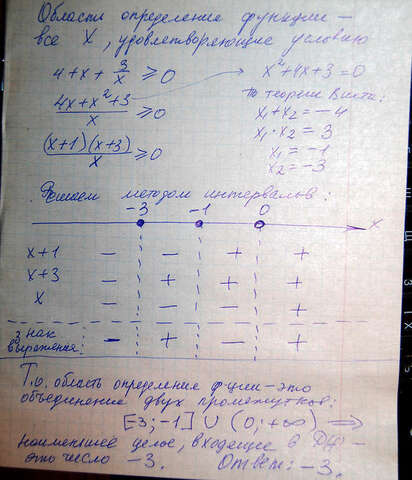 Области определения функции –
все X, удовлетворяющие условию
4 + x + 3/x ⩾ 0
x² + 4x + 3 = 0
(4x + x² + 3)/x ⩾ 0
По теореме Виета:
x₁ + x₂ = -4
x₁ · x₂ = 3
((x+1)(x+3))/x ⩾ 0
x₁ = -1
x₂ = -3
Решаем методом интервалов:
-3 -1 0 x
x+1 - - + +
x+3 - + + +
x - - - +
Знак
выражения: - + - +
Т.о. область определения ф-ции – это
объединение двух промежутков:
[-3; -1] ∪ (0; +∞) ⟹
наименьшее целое, входящее в
это число -3. Ответ: -3.